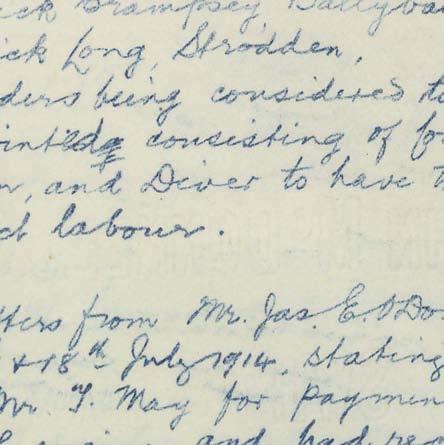 ick Grampsey Ballyba
ick Long, Strodden,
ders being considered to
inted consisting of fo
n, and Diver to have t
ct labour.
tters from Mr. Jas. E. O'Do
& 18th July 1914, stating
Mr. T. May for paymen
and had re